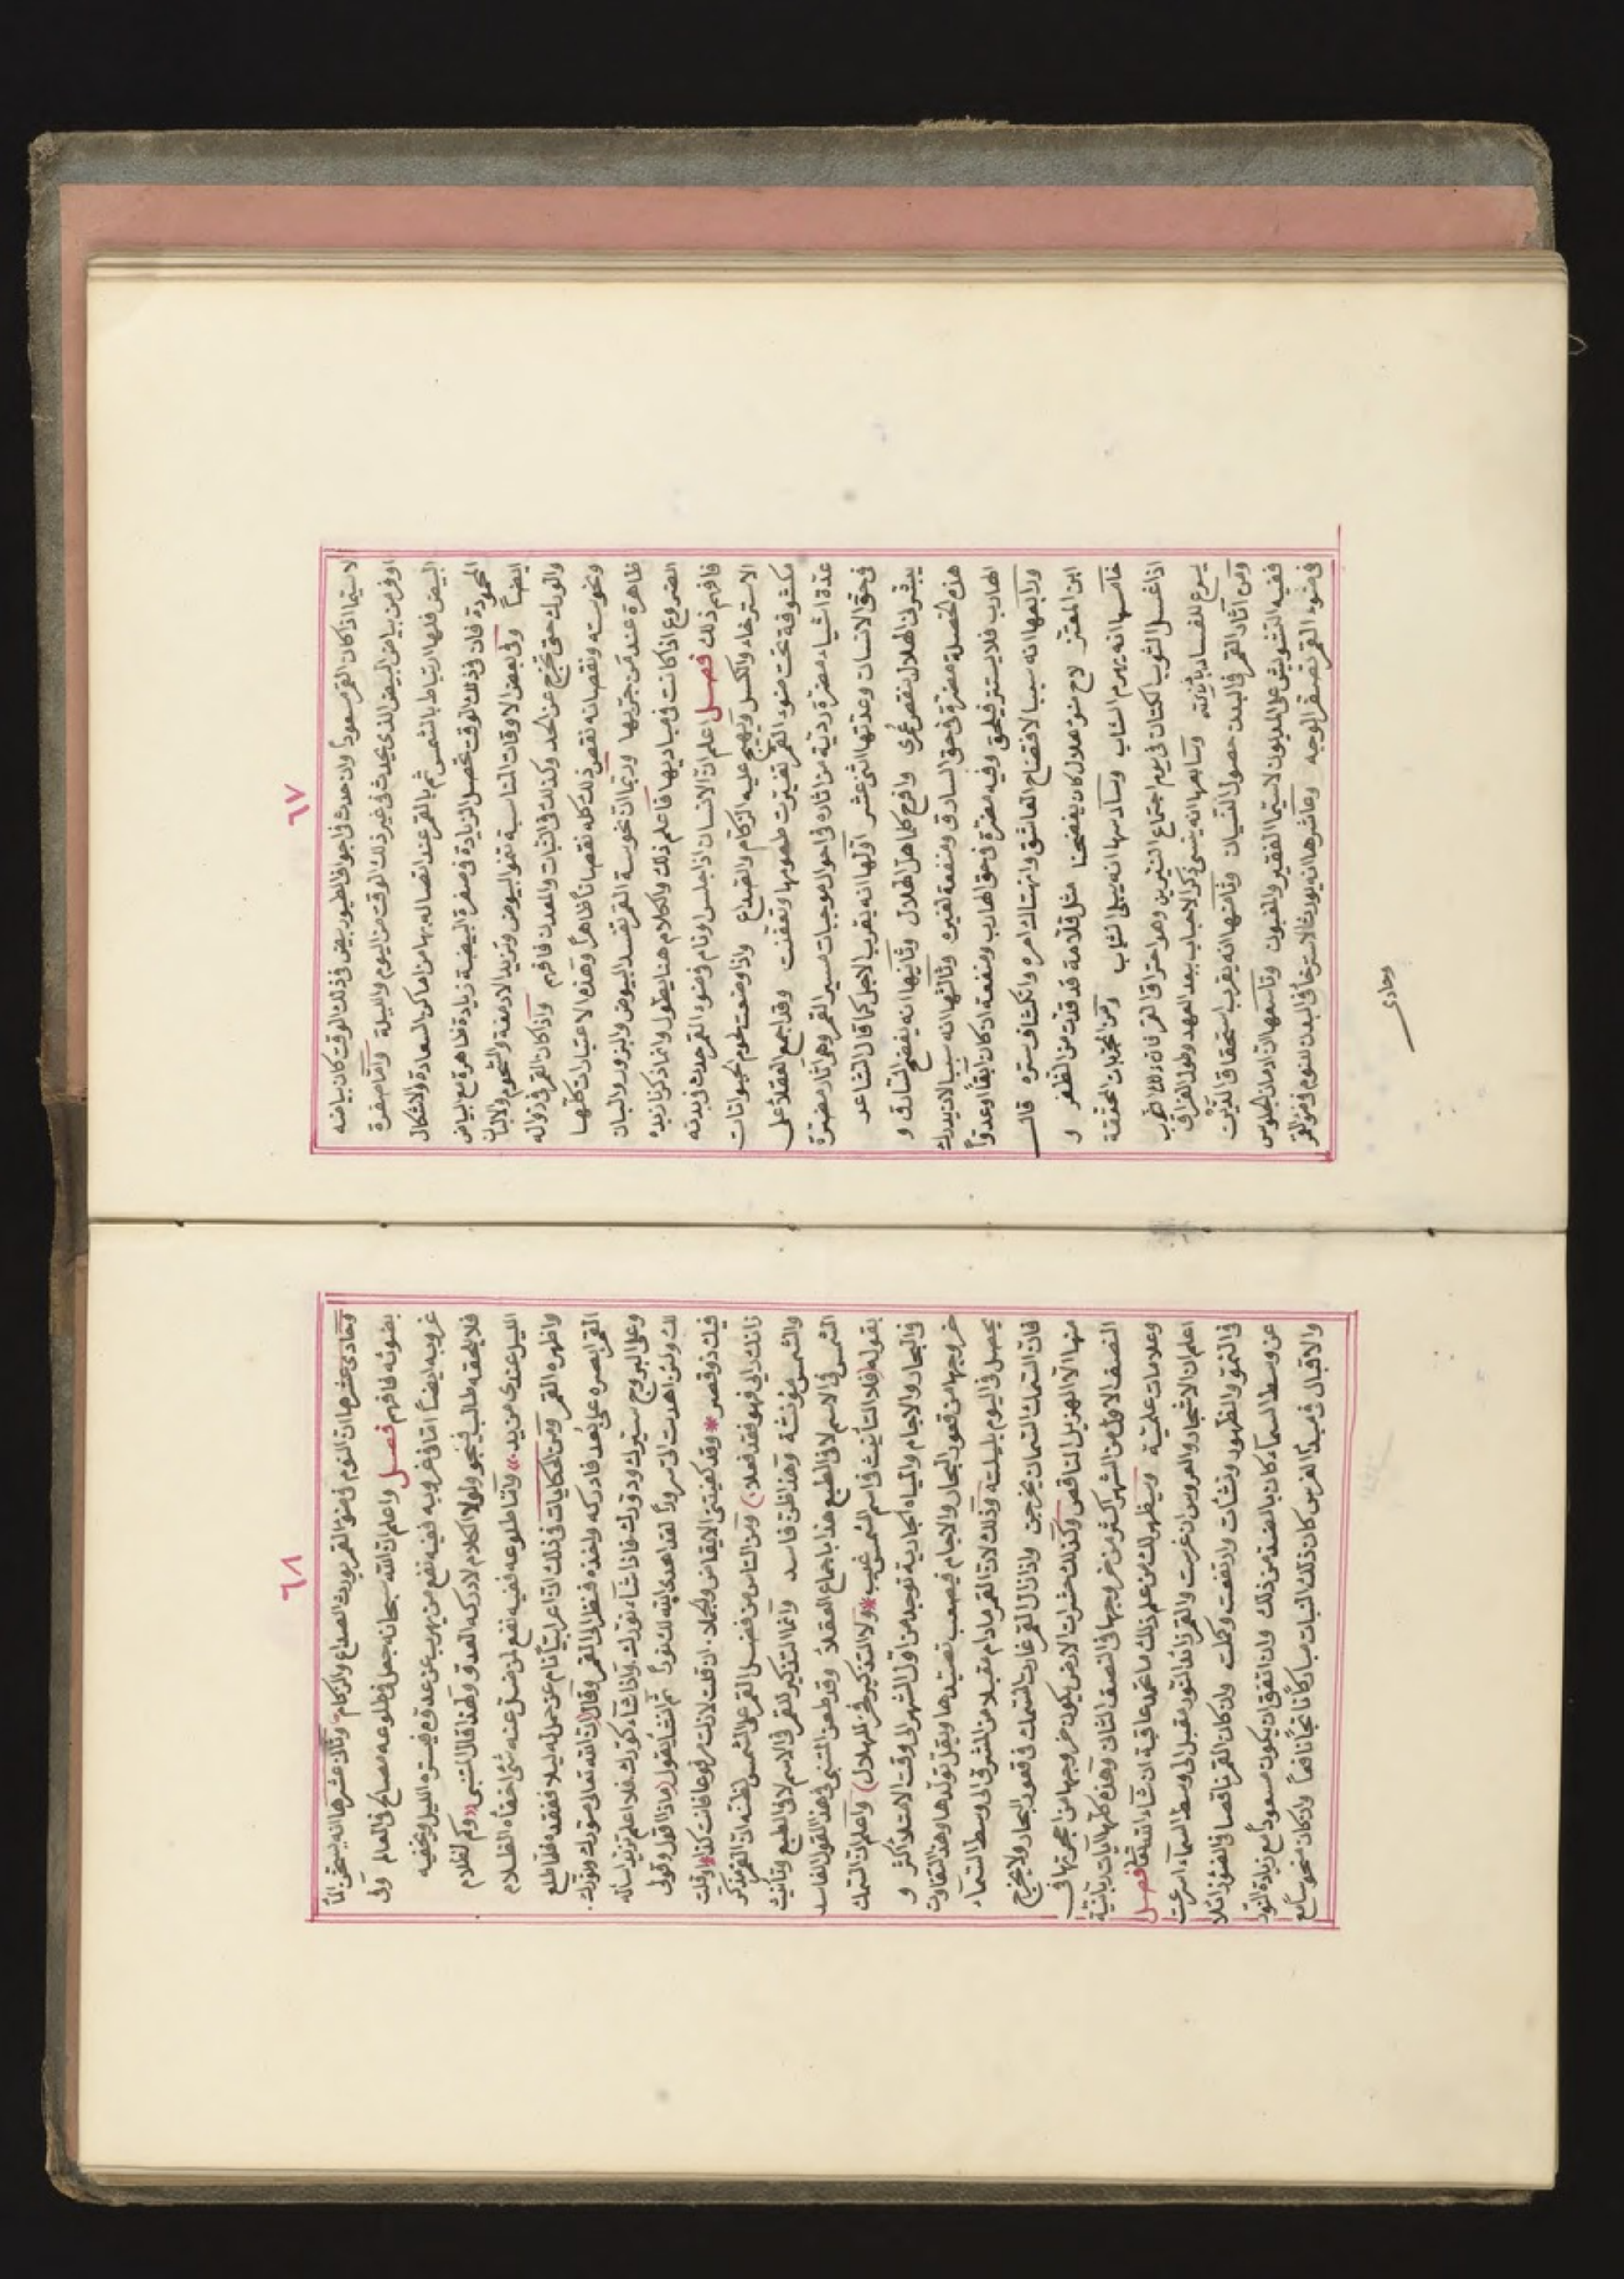 ٦٧
لاسيما اذا كان القمر مسعوداً وان حدث في اجواف الطيور بيض في ذلك الوقت كان بياضه
اوفر من بياض البيض الذي يحدث في غير ذلك الوقت من اليوم والليلة وأما صفرة
البيض فلها ارتباط بالشمس ثم بالقمر عند اتصاله بها من اماكن السعادة والاشكال
المحمودة فان في ذلك الوقت تحصل الزيادة في صفرة البيضة زيادة ظاهرة مع بياض
ايضاً وفي بعض الاوقات المناسبة تنمو البيوض وتزيد الادمغة والشحوم والالبان
والورك حتى تخرج عن الحد وكذلك في النبات والمعدن فافهم واذا كان القمر في زواله
ونحوسته ونقصانه نقص ذلك كله نقصاناً ظاهراً وهذه الاعتبارات كلها
ظاهرة عند من جربها وربما ان نحوسة القمر تفسد البيوض والبزور والبان
الضروع اذا كانت في مباديها فاعلم ذلك والكلام هنا يطول وانما ذكرنا زبده
فافهم ذلك فصل اعلم ان الانسان اذا جلس او نام في ضوء القمر حدث في بدنه
الاسترخاء والكسل ويهيج عليه الزكام والصداع واذا وضعت لحوم الحيوانات
مكشوفة تحت ضوء القمر تغيرت طعومها وتعفنت وقد اجمع العقلاء على
عدة اشياء مضرة ردية من اثاره في احوال موجبات مسير القمر وهي اثار مضرة
في حق الانسان وعدتها اثني عشر اولها انه يقرب الاجل كما قال الشاعر
يبشرني الهلال بنقص عمري وافرح كلما هل الهلال وثانيها انه يفضح السارق و
هذه الخصلة مضرة في حق السارق ومنفعة لغيره وثالثها انه سببا لان يدرك
الهارب فلا يستتر فيلحق وفيه مضرة في حق الهارب ومنفعة ان كان ابقاً او عدواً
ورابعها انه سببا لافتضاح العاشق وانهتاك امره وانكشاف ستره قال
ابن المعتز لاح ضوء هلال كان يفضحنا مثل قلامة قد قدت من الظفر و
خامسها انه يهرم الشاب وسادسها انه يبلي الثياب ومن المجربات المحققة
اذا غسل الثوب الكتان في يوم اجتماع النيرين وهو احتراق القمر فان ذلك الثوب
يسرع للفساد وسابعها انه ينسي ذكر الاحباب ببعد العهد وطول الفراق
ومن آثار القمر في البدن حصول الغشيان وثامنها انه يقرب استحقاق الدين
ففيه التشويش على المديون لاسيما الفقير والمغبون وتاسعها ان ادمان الجلوس
في ضوء القمر تصفر الوجه وعاشرها انه يورث الاسترخاء في البدن للنوم في ضوء القمر
وحادي
٦٨
وحادي عشرها ان النوم في ضوء القمر يورث الصداع والزكام وثاني عشرها انه يسخن الماء
بضوئه فافهم فصل واعلم ان الله سبحانه جعل في طلوعه مصالح في العالم وفي
غروبه ايضاً اما في غروبه ففيه نفع من يهرب عن عدوه فيستره الليل ويخفيه
فلا يلحقه طالب فينجو ولولا الكلام لادركه العدو ولهذا قال المتنبي «وكم لظلام
الليل عندي من يد» واما طلوعه ففيه نفع لمن ضل عنه شئ اخفاه الظلام
واظهره القمر ومن الحكايات في ذلك ان اعرابيا نام عن جمله ليلا ففقده فلما طلع
القمر ابصره على بعد فادركه واخذه فنظر الى القمر وقال ان الله تعالى صورك ونورك
وعلى البروج سيرك ودورك فاذا شاء نورك واذا شاء كورك فلا اعلم مزيد اساله
لك ولئن اهديت الي سروراً لقد اهدى الله لك نوراً ثم انشا يقول (ماذا اقول وقولي
فيك ذو قصر * وقد كفيتني الايقاض والجملا. ان قلت لازلت مرفوعا فانت كذا * او قلت
زانك ربي فهو قد فعلا) ومن الناس من فضل القمر على الشمس لظنه ان القمر مذكر
والشمس مؤنثة وهذا ظن فاسد وانما التذكير للقمر في الاسم لا في الطبع وتأنيث
الشمس في الاسم لا في الطبع هذا باجماع العقلاء وقد طعن المتنبي في هذا القول الفاسد
بقوله (فلا التأنيث في اسم الشمس عيب * ولا التذكير فخر للهلال) واعلم ان السمك
في البحار والاجام والمياه الجارية توجد من اول الشهر الى وقت الامتلاء اكثر و
خروجها من قعود البحار والاجام فيصعب تصيدها ويقل تولدها وهذا التفاوت
يحصل في اليوم بليلته وذلك لان القمر مادام مقبلا من المشرق الى وسط السماء
فان السمك السمان يخرجن واذا زال القمر غارت السمك في قعود البحار ولا يخرج
منها الا الهزيل الناقص وكذلك حشرات الارض يكون خروجها من اجحرتها في
النصف الاول من الشهر اكثر من خروجها في النصف الثاني وهذه كلها آيات ربانية
وعلامات علمية وسيظهر لك من علم ذلك ما تحمد عاقبة ان شاء الله تعالى فصل
اعلم ان الاشجار والغروس ان غرست والقمر زائد النور مقبل الى وسط السماء اسرعت
في النمو والظهور ونشأت وارتفعت وحملت وان كان القمر ناقصا في الضوء زائلا
عن وسط السماء كان بالضد من ذلك وان اتفق ان يكون مسعوداً مع زيادة النور
والاقبال في مبدأ الغرس كان ذلك النبات مباركاً ناتجاً نافعاً وان كان منحوساً مع